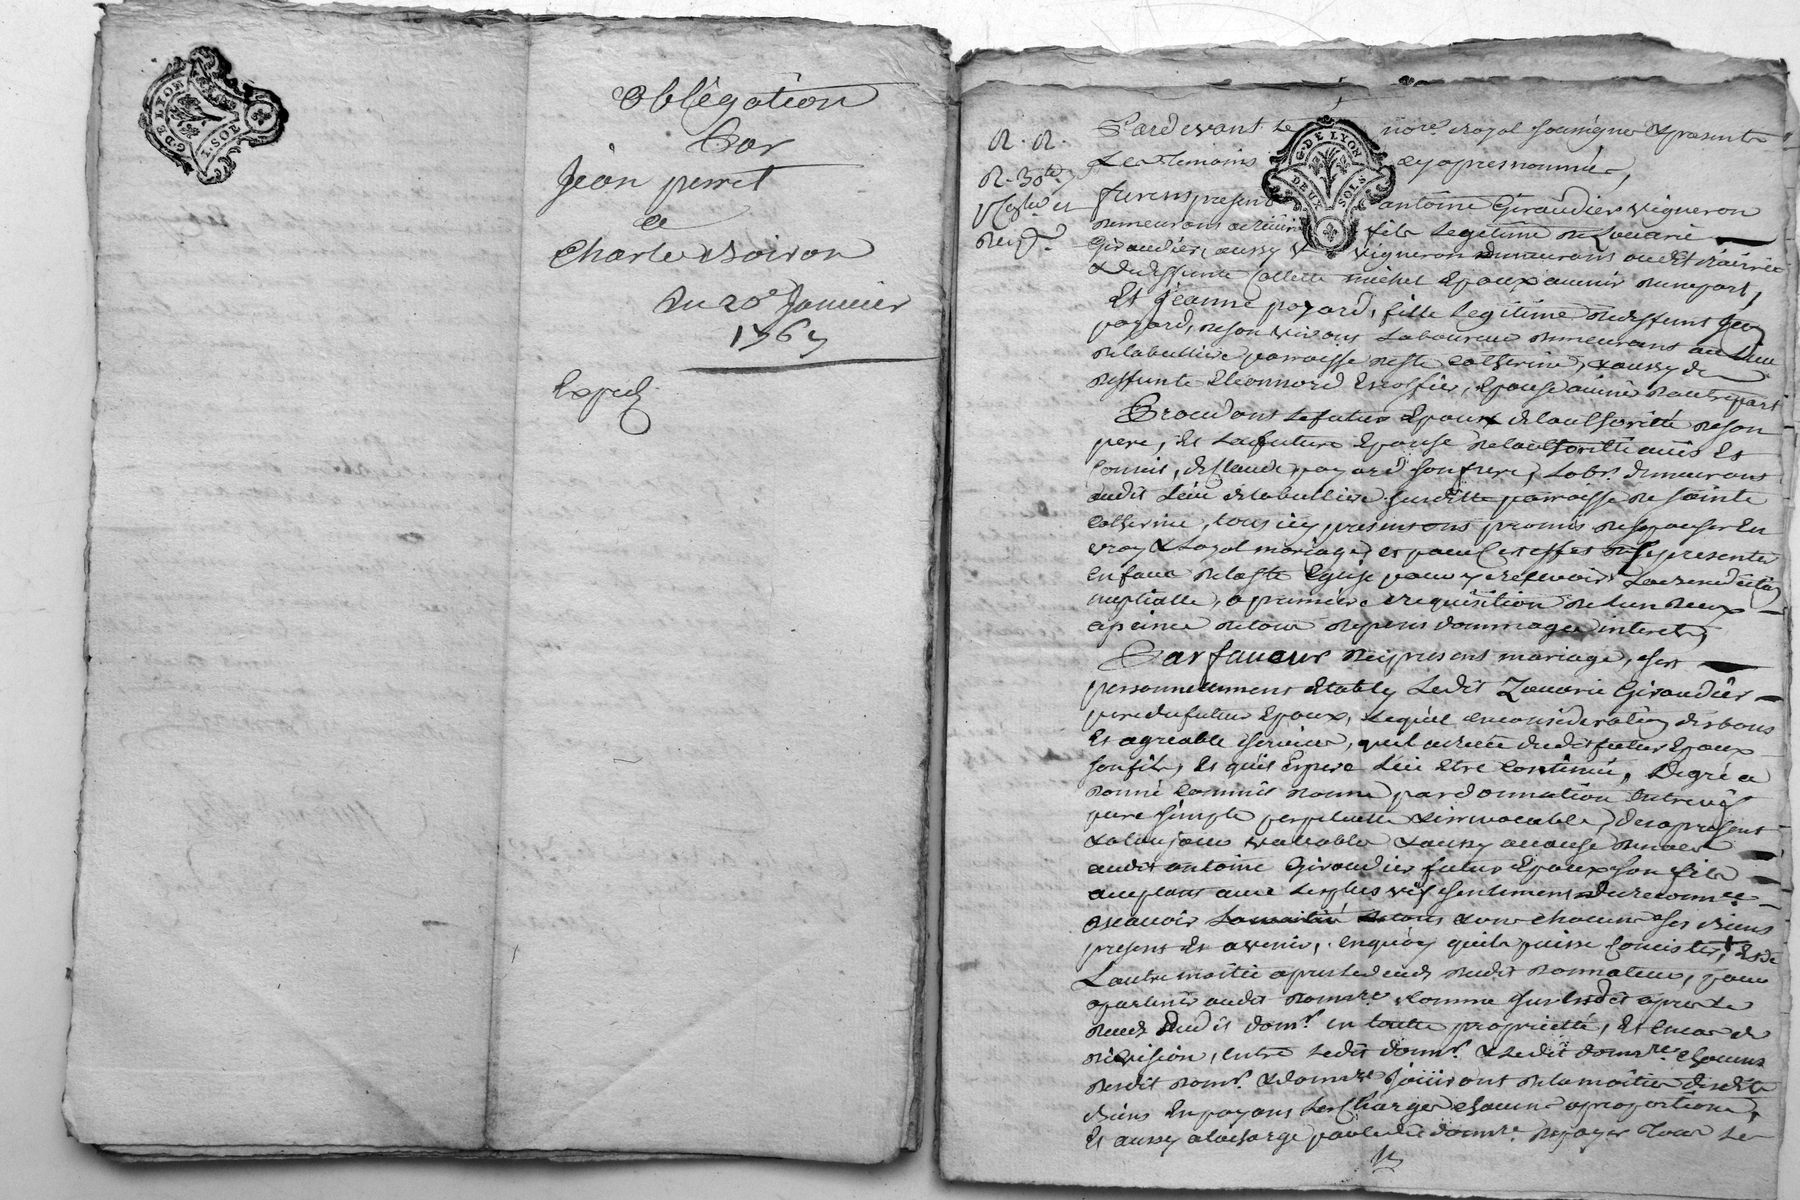 G. DE LYON
1. SOL
Obligation
Par
Jean perret
a
Charle Boiron
Du 20e Janvier
1767
Exped
Pardevant Le nore. Royal soussigné & presents
Les temoins cy apres nommés,
furent present antoine Giraudier vigneron
G. DE LYON
DEUX SOLS
demeurant fils Legitime de Zacarie
Giraudier, aussy vigneron demeurans audit
& deffunte Collette michel Epoux avenir d'une part,
Et Jeanne poyard, fille Legitime de deffunt
poyard, de son vivant Laboureur demeurant au Lieu
de labulliere paroisse de Ste Catherine, & aussy de
deffunte Eleonnord Escoffier, Epouse avenir d'autre part
Procedant Le futur Epoux de l'authorité de son
pere, Et La future Epouse de l'authorité avis Et
Conseil, de Claude poyard son frere, Labr. demeurant
audit Lieu de labulliere susditte paroisse de sainte
Catherine, tous icy presents ont promis de s'epouser En
vray & Loyal mariage, et pour cet effet de se presenter
En face de la Ste Eglise pour y recevoir La benediction
nuptialle, a premiere requisition de l'un d'eux
a peine de tous depens dommages interets,
En faveur desquels presents mariage, s'est
personnellement Etably Ledit Zacarie Giraudier
pere du futur Epoux, Lequel en consideration des bons
Et agreable services, qu'il a receu dudit futur Epoux
son fils, Et qu'il Espere Luy Etre Continué, De gré a
donné Comme il donne par donnation Entrevifs
pure simple perpetuelle & irrevocable, des apresent
& a toujours valable & aussy a cause de mort
audit antoine Giraudier futur Epoux son fils
acceptant avec Les plus vif sentiment de reconnce.
a scavoir tous & un chacuns ses Biens
present Et avenir, en quoy qu'ils puisse Consister, Et de
L'autre moitié apres Le deces dudit donnateur, pour
apartenir audit donatre. Comme susdit apres Le
deces dudit donr. en toutte proprietté, Et en cas de
division, entre Ledit donnr. & Ledit donatre. chacuns
desdit donr. & donatre. Jouiront de la moitié desdits
Biens En payant Les Charges chacun a proportion,
Et aussy a la charge par Ledit donatre. de payer